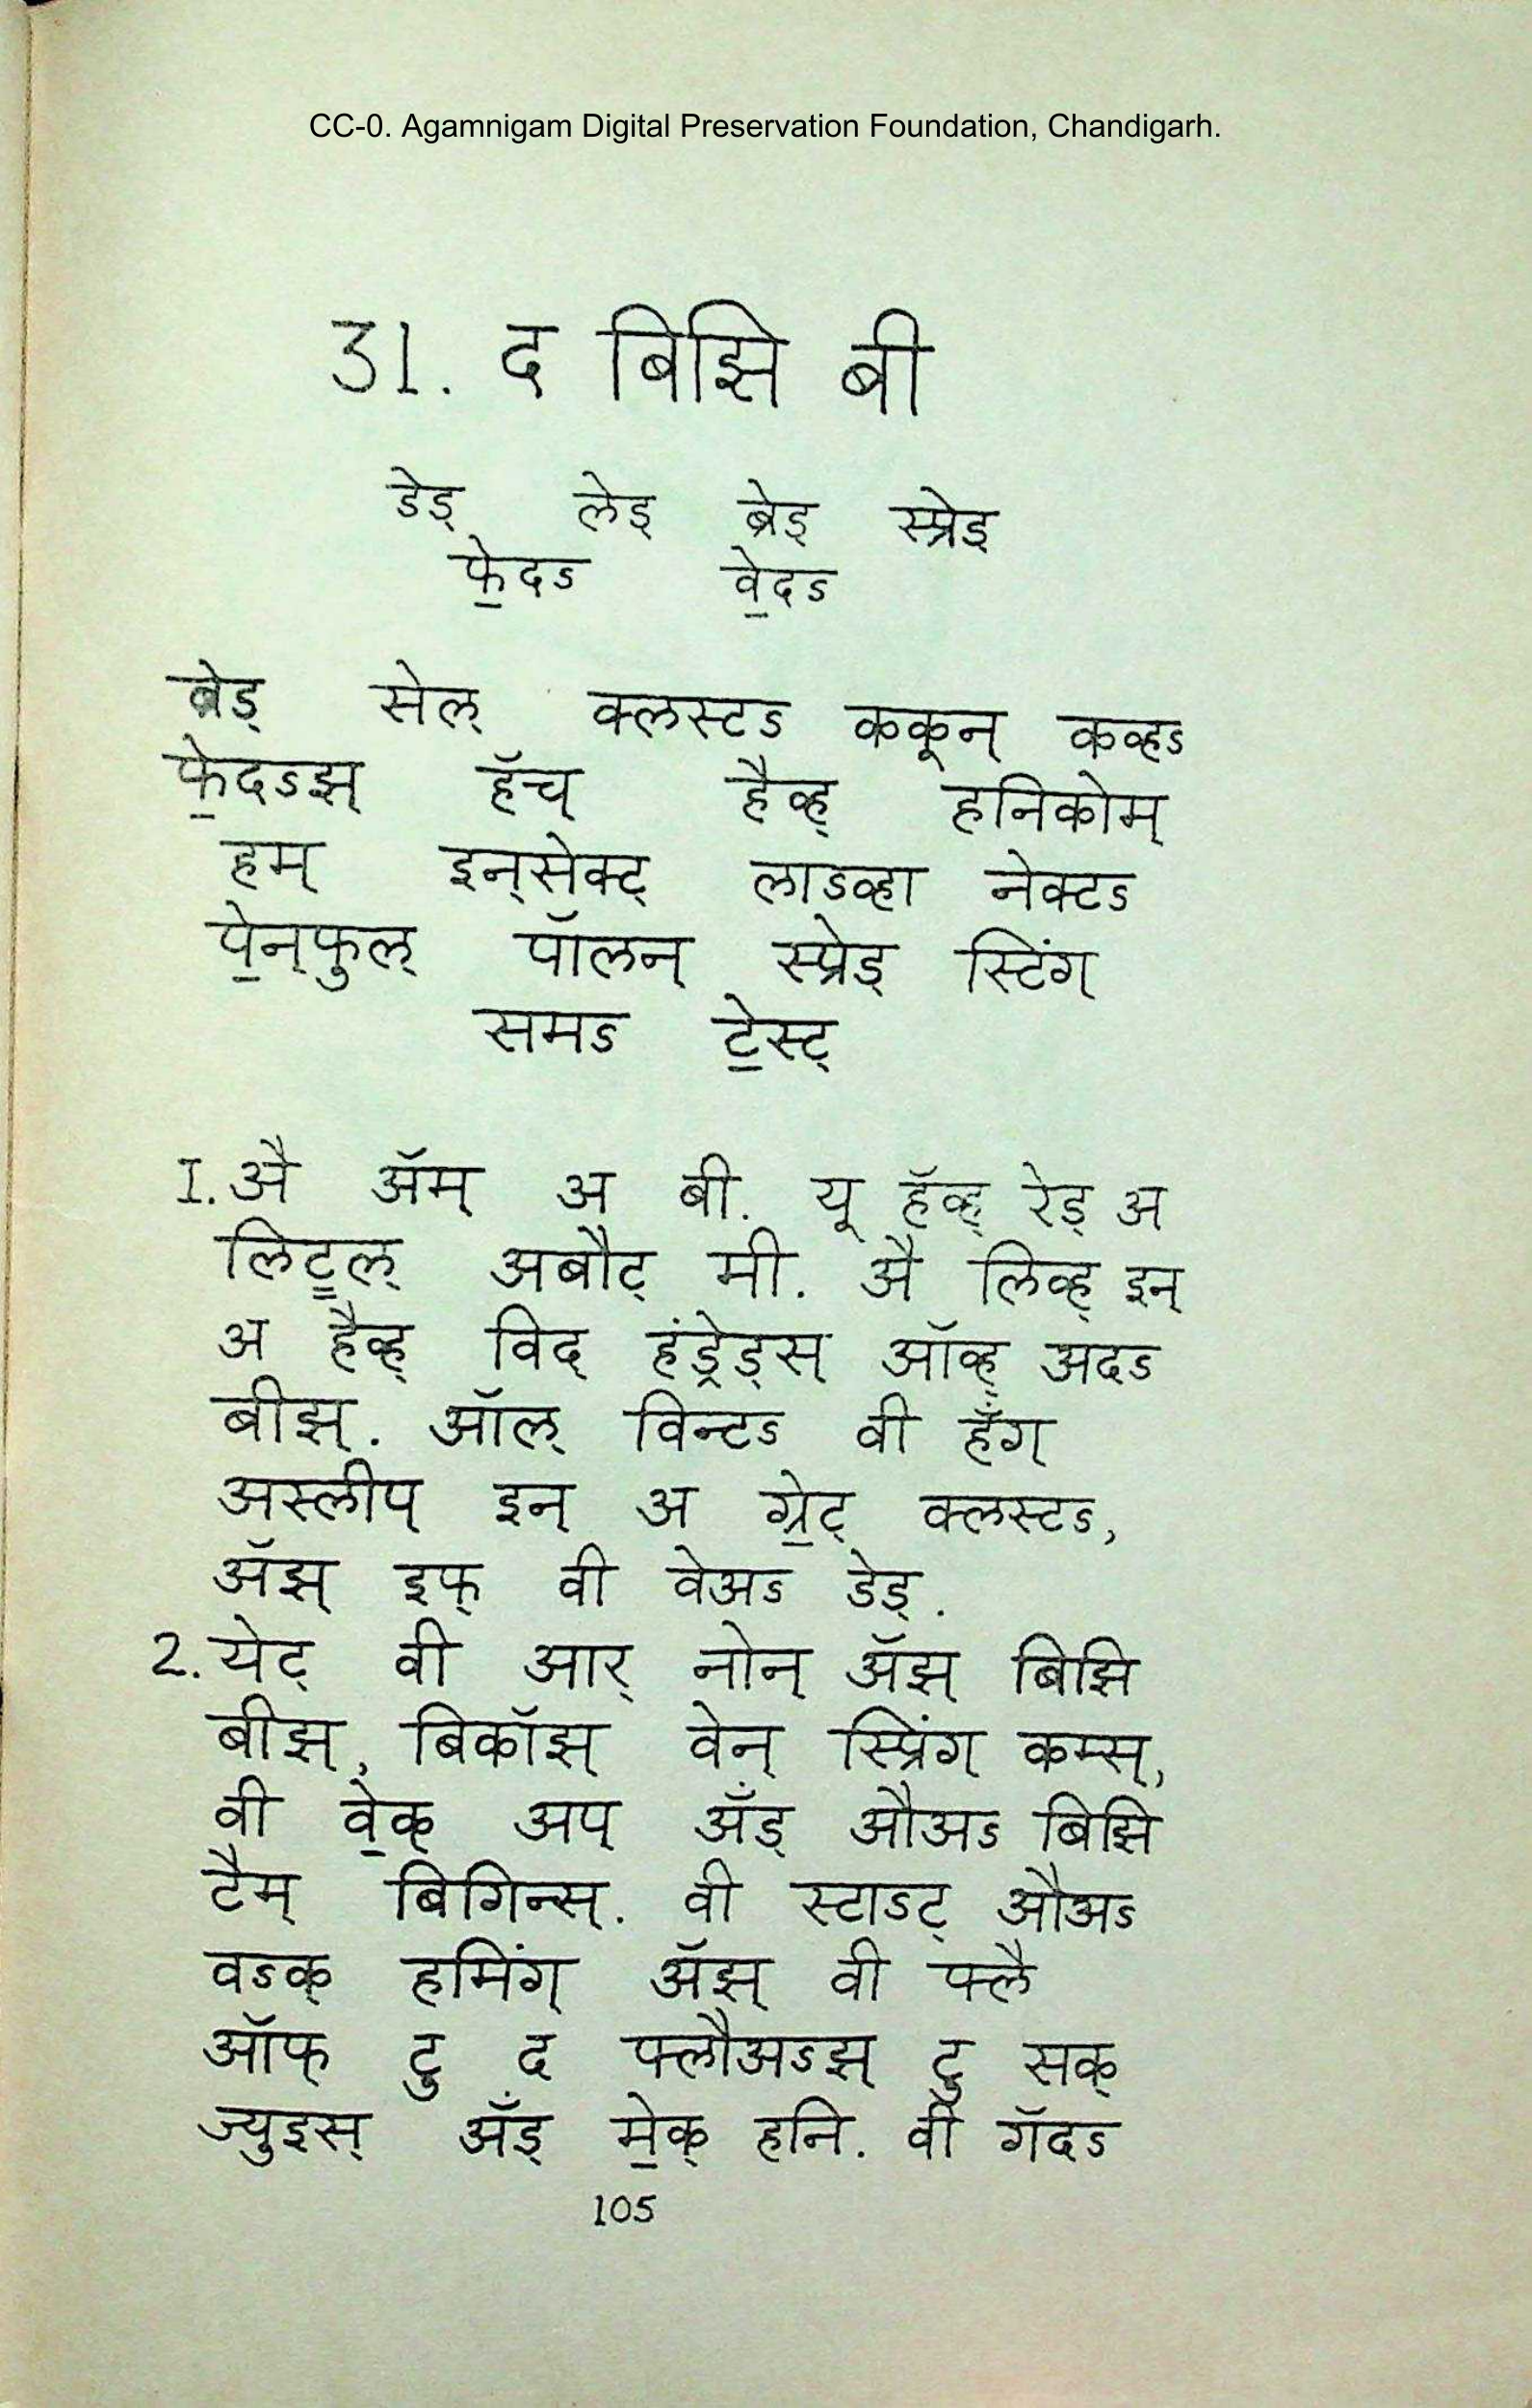 CC-0. Agamnigam Digital Preservation Foundation, Chandigarh.
31. द बिझि बी
डेड् लेइ ब्रेड् स्प्रेइ
फे॒दऽ वे॒दऽ
ब्रेड् सेल् क्लस्टऽ ककून् कव्हऽ
फे॒दऽझ् हॅच् हैव्ह् हनिकोम्
हम् इन्सेक्ट् लाऽव्हा नेक्टऽ
पे॒न्फुल् पॉलन् स्प्रेड् स्टिंग्
समऽ टे॒स्ट्
I. अै ॲम् अ बी. यू हॅव्ह् रेड् अ
लिट्ल् अबौट् मी. अै लिव्ह् इन्
अ हैव्ह् विद् हंड्रेड्स् ऑव्ह् अदऽ
बीझ्. ऑल् विन्टऽ वी हँग्
अस्लीप् इन् अ ग्रे॒ट् क्लस्टऽ,
ॲझ् इफ् वी वेअऽ डेड्.
2. येट् वी आर् नोन् ॲझ् बिझि
बीझ्, बिकॉझ् वेन् स्प्रिंग् कम्स्,
वी वे॒क् अप् ॲंड् औअऽ बिझि
टैम् बिगिन्स्. वी स्टाऽट् औअऽ
वऽक् हमिंग् ॲझ् वी फ्लै
ऑफ् टु द फ्लौअऽझ् टु सक्
ज्युइस् ॲंड् मे॒क् हनि. वी गॅदऽ
105